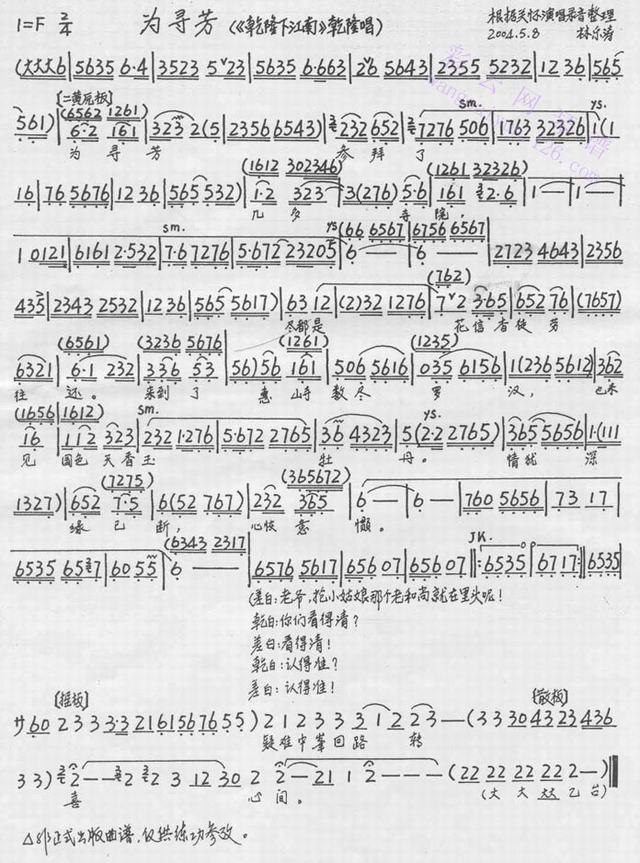 1=F 2/4 为寻芳 (《乾隆下江南》乾隆唱) 根据关怀演唱录音整理
2004.5.8 林乐涛
(大大大6|5635 6·4|3523 5ˇ23|5635 6·663|2ˇ6 5643|2355 5232|12 36|565
[二黄尾板] (6562 1261) sm. ys.
561)|6·2 161|3232(5|2356 6543)|232 652|7276 506|1763 32326|1(1
为 寻 芳 参 拜 了
(1612 302346) (1261 32326)
16|76 5676|12 36|565 532)|1·2 323|3(276) 5·6|161 2·6|1—|1—
几 多 寺 院,
sm. ys (66 6567 |6756 6567)
1 0121|6161 2·532|7·6 7276|5·672 23205|6 —|6 —|2723 4643|2356
(762)
435|2343 2532|12 36|565 5617)|63 12|(2)32 1276|7ˇ2 3·65|652 76|(7657)
尽都是 花 信 香 徒 劳
(6561) (3236 5676) (1261) (1235)
6321|6·1 232|336 53|56)56 161|506 5616|035 6156|1(236 5612)|362
往 还。 来到 了 惠 山寺 数 尽 罗 汉, 也来
(1656|1612) sm. ys.
16|112 323|232 1·276|5·672 2765|36 4323|5(2·2 2765)|365 5656|1·(111
见 国色 天香 玉 牡 丹。 情犹 深
(7275) (365672)
1327)|652 7·5|6(52 767)|232 365|6 —|6 —|760 5656|73 17
缘 已 断, 心恢 意 懒。
(6343 2317) JK.
6535 657|60 55|6 ——|6576 5617|656 07|656 07‖:6535|6717:‖6535
(差白:老爷,抢小姑娘那个老和尚就在里头呢!
乾白:你们看得清?
差白:看得清!
乾白:认得准?
差白:认得准!
[摇板] [散板]
サ60 2 3 3 3·3 2 1 6 1 5 6 7 6 5 5) 2 1 2 3 3 3 1 2 2 3 — (3 3 30 43 23 436
疑难中峯回路 转
3 3) 2 — — 2 2 3 12 30 2 2 — 21 1 2 — — — (22 22 22 22 2 —)
喜 心 间。 (大 大 大大 乙 台)
△非正式出版曲谱,仅供练功参改。